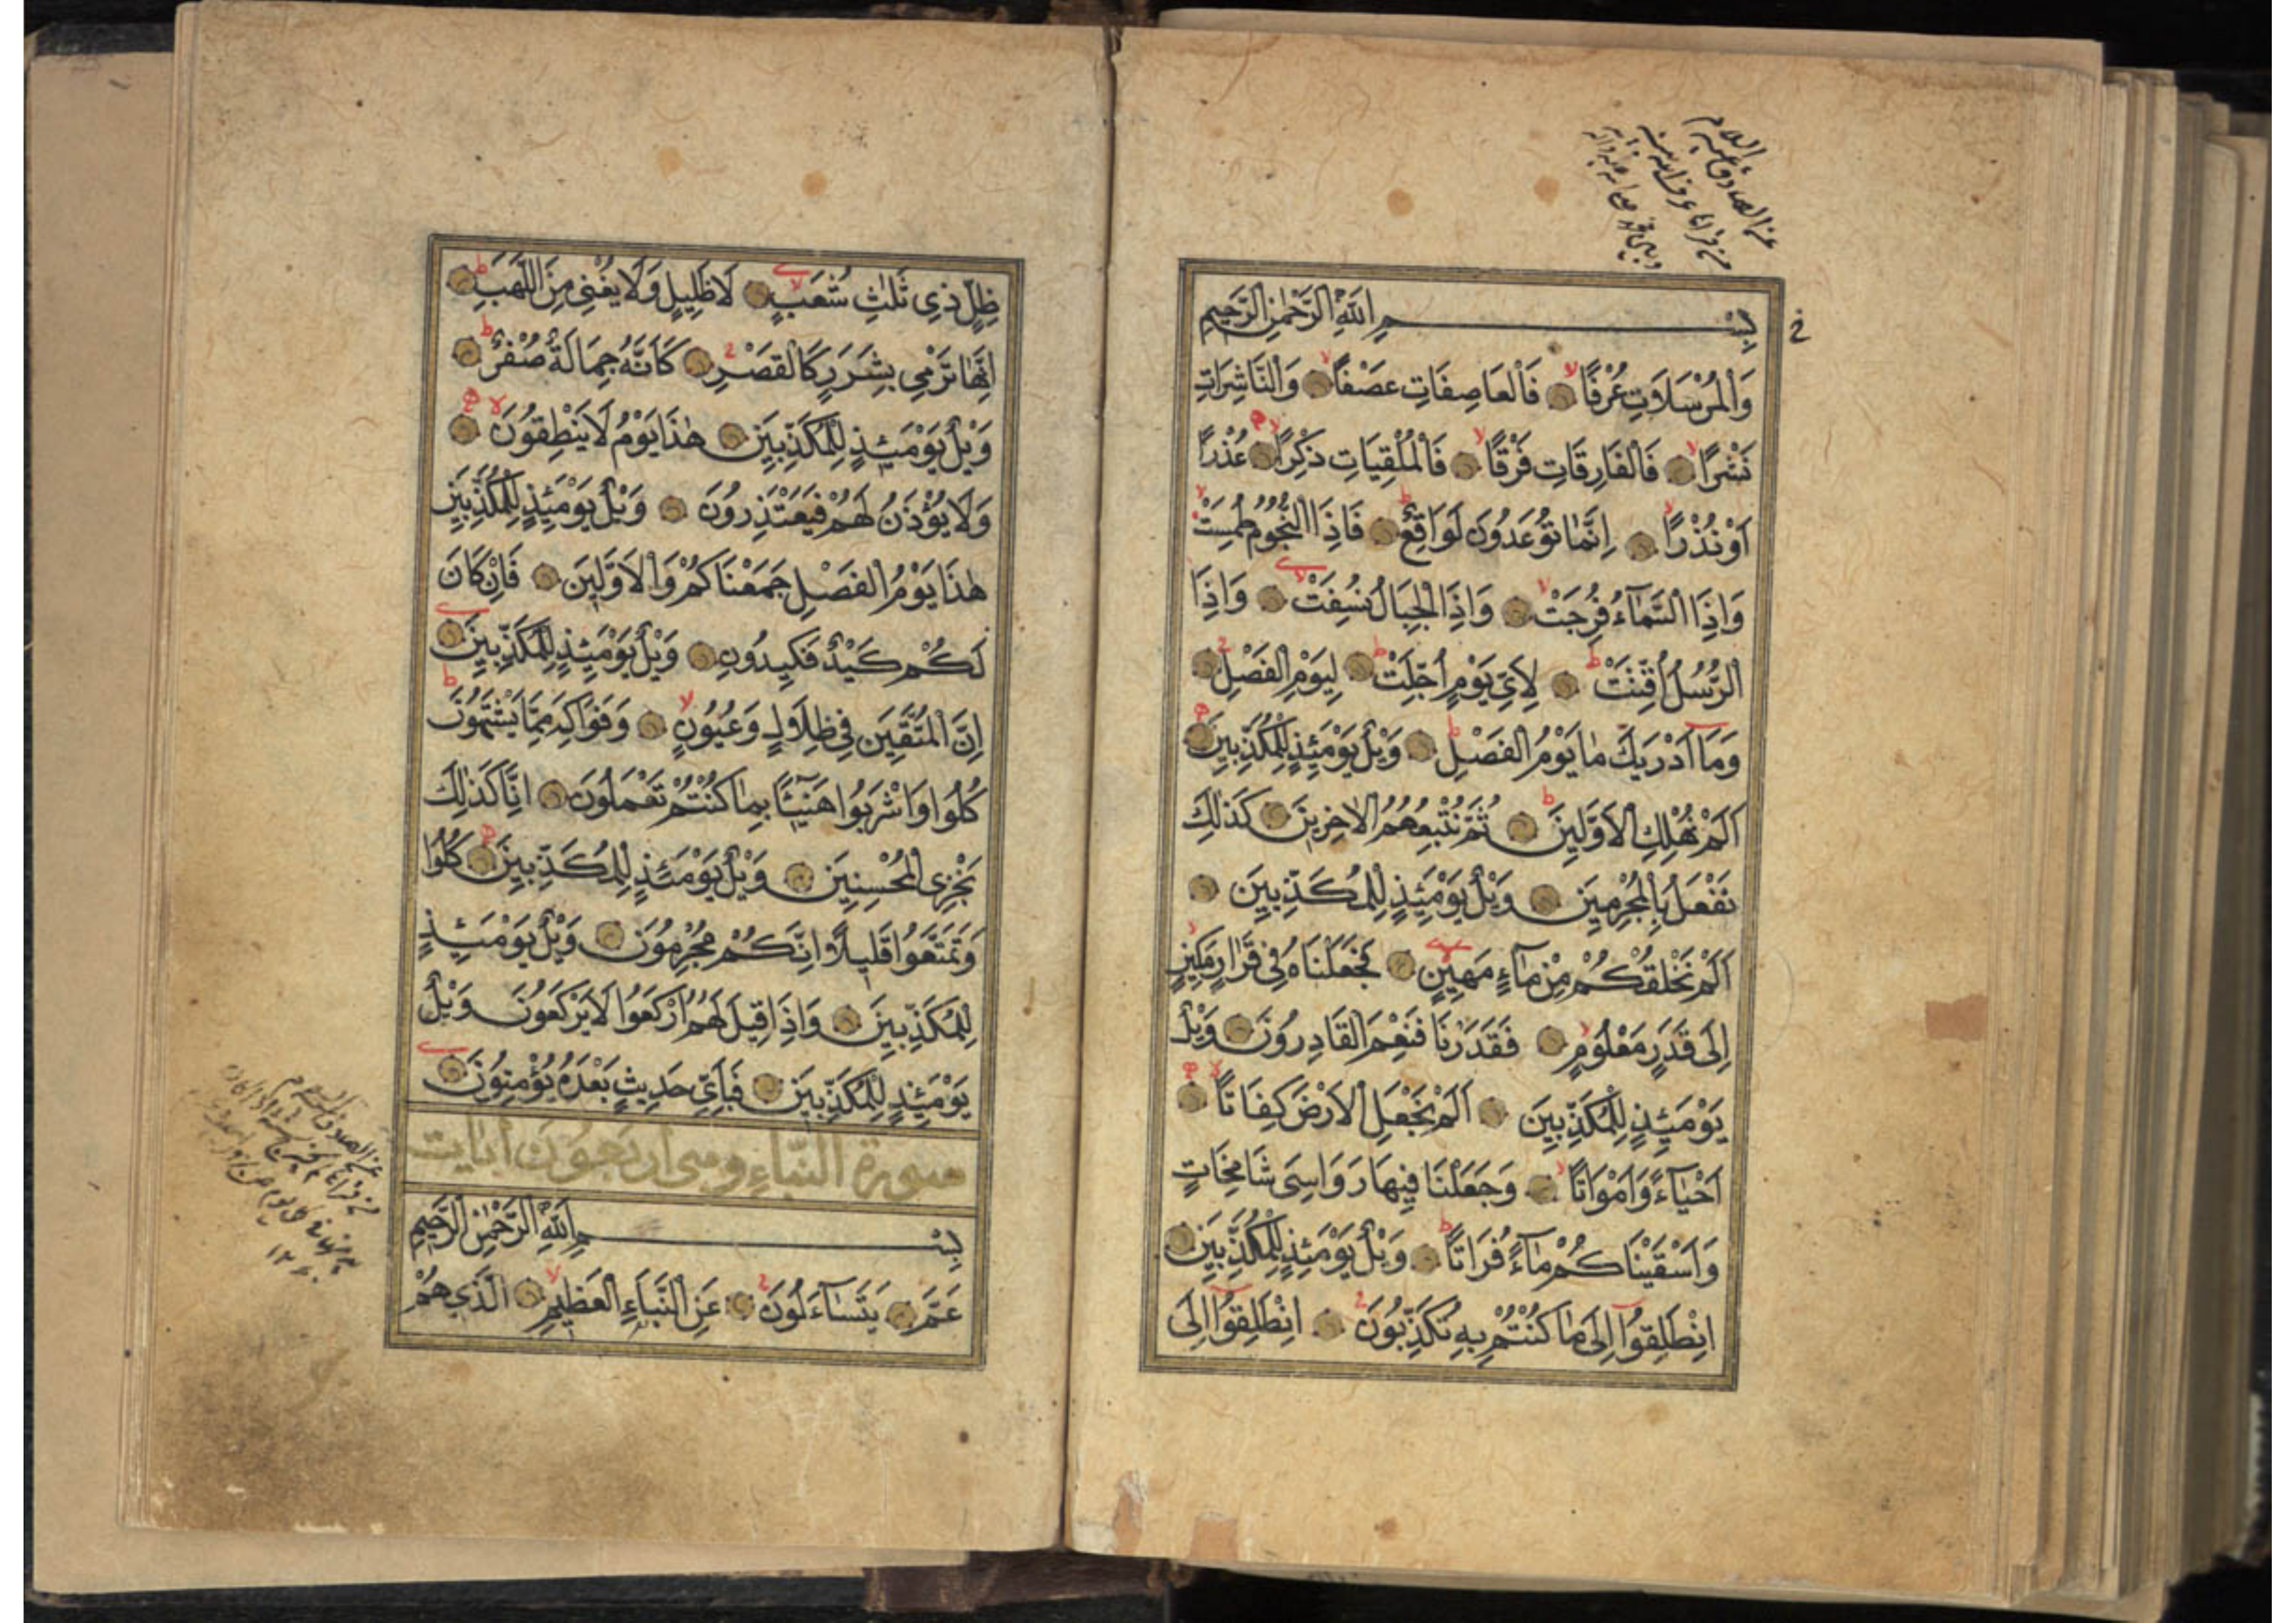 بِسْمِ اللَّهِ الرَّحْمٰنِ الرَّحِيمِ
وَالْمُرْسَلَاتِ عُرْفًا فَالْعَاصِفَاتِ عَصْفًا وَالنَّاشِرَاتِ
نَشْرًا فَالْفَارِقَاتِ فَرْقًا فَالْمُلْقِيَاتِ ذِكْرًا عُذْرًا
اَوْ نُذْرًا اِنَّمَا تُوعَدُونَ لَوَاقِعٌ فَاِذَا النُّجُومُ طُمِسَتْ
وَاِذَا السَّمَآءُ فُرِجَتْ وَاِذَا الْجِبَالُ نُسِفَتْ وَاِذَا
الرُّسُلُ اُقِّتَتْ لِاَيِّ يَوْمٍ اُجِّلَتْ لِيَوْمِ الْفَصْلِ
وَمَا اَدْرٰيكَ مَا يَوْمُ الْفَصْلِ وَيْلٌ يَوْمَئِذٍ لِلْمُكَذِّبِينَ
اَلَمْ نُهْلِكِ الْاَوَّلِينَ ثُمَّ نُتْبِعُهُمُ الْاٰخِرِينَ كَذٰلِكَ
نَفْعَلُ بِالْمُجْرِمِينَ وَيْلٌ يَوْمَئِذٍ لِلْمُكَذِّبِينَ
اَلَمْ نَخْلُقْكُمْ مِنْ مَآءٍ مَهِينٍ فَجَعَلْنَاهُ فِى قَرَارٍ مَكِينٍ
اِلَى قَدَرٍ مَعْلُومٍ فَقَدَرْنَا فَنِعْمَ الْقَادِرُونَ وَيْلٌ
يَوْمَئِذٍ لِلْمُكَذِّبِينَ اَلَمْ نَجْعَلِ الْاَرْضَ كِفَاتًا
اَحْيَآءً وَاَمْوَاتًا وَجَعَلْنَا فِيهَا رَوَاسِىَ شَامِخَاتٍ
وَاَسْقَيْنَاكُمْ مَآءً فُرَاتًا وَيْلٌ يَوْمَئِذٍ لِلْمُكَذِّبِينَ
اِنْطَلِقُوا اِلَى مَا كُنْتُمْ بِهِ تُكَذِّبُونَ اِنْطَلِقُوا اِلَى
ظِلٍّ ذِى ثَلٰثِ شُعَبٍ لَا ظَلِيلٍ وَلَا يُغْنِى مِنَ اللَّهَبِ
اِنَّهَا تَرْمِى بِشَرَرٍ كَالْقَصْرِ كَاَنَّهُ جِمَالَةٌ صُفْرٌ
وَيْلٌ يَوْمَئِذٍ لِلْمُكَذِّبِينَ هٰذَا يَوْمُ لَا يَنْطِقُونَ
وَلَا يُؤْذَنُ لَهُمْ فَيَعْتَذِرُونَ وَيْلٌ يَوْمَئِذٍ لِلْمُكَذِّبِينَ
هٰذَا يَوْمُ الْفَصْلِ جَمَعْنَاكُمْ وَالْاَوَّلِينَ فَاِنْ كَانَ
لَكُمْ كَيْدٌ فَكِيدُونِ وَيْلٌ يَوْمَئِذٍ لِلْمُكَذِّبِينَ
اِنَّ الْمُتَّقِينَ فِى ظِلَالٍ وَعُيُونٍ وَفَوَاكِهَ مِمَّا يَشْتَهُونَ
كُلُوا وَاشْرَبُوا هَنِيئًا بِمَا كُنْتُمْ تَعْمَلُونَ اِنَّا كَذٰلِكَ
نَجْزِى الْمُحْسِنِينَ وَيْلٌ يَوْمَئِذٍ لِلْمُكَذِّبِينَ كُلُوا
وَتَمَتَّعُوا قَلِيلًا اِنَّكُمْ مُجْرِمُونَ وَيْلٌ يَوْمَئِذٍ
لِلْمُكَذِّبِينَ وَاِذَا قِيلَ لَهُمُ ارْكَعُوا لَا يَرْكَعُونَ وَيْلٌ
يَوْمَئِذٍ لِلْمُكَذِّبِينَ فَبِاَيِّ حَدِيثٍ بَعْدَهُ يُؤْمِنُونَ
سورة النباء وهى اربعون ايات
بِسْمِ اللَّهِ الرَّحْمٰنِ الرَّحِيمِ
عَمَّ يَتَسَآءَلُونَ عَنِ النَّبَاءِ الْعَظِيمِ الَّذِى هُمْ